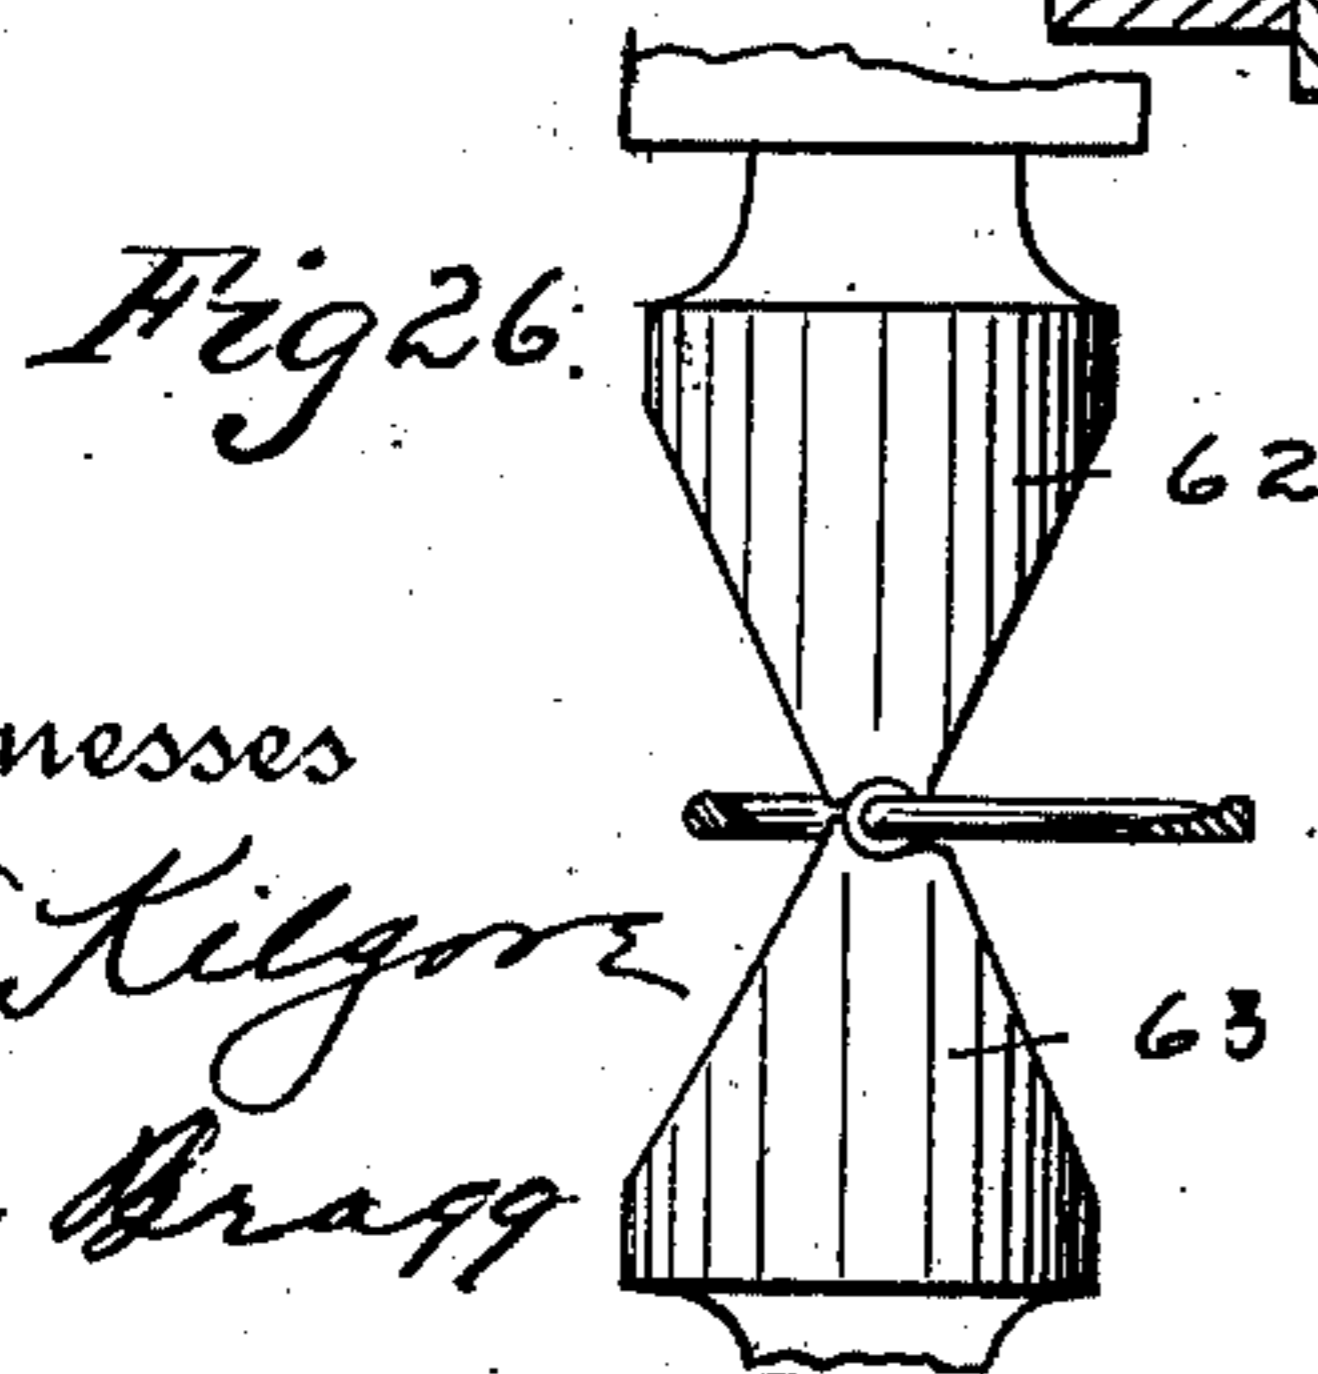 Fig 26.
62
nesses
Kilgore
63
Bragg